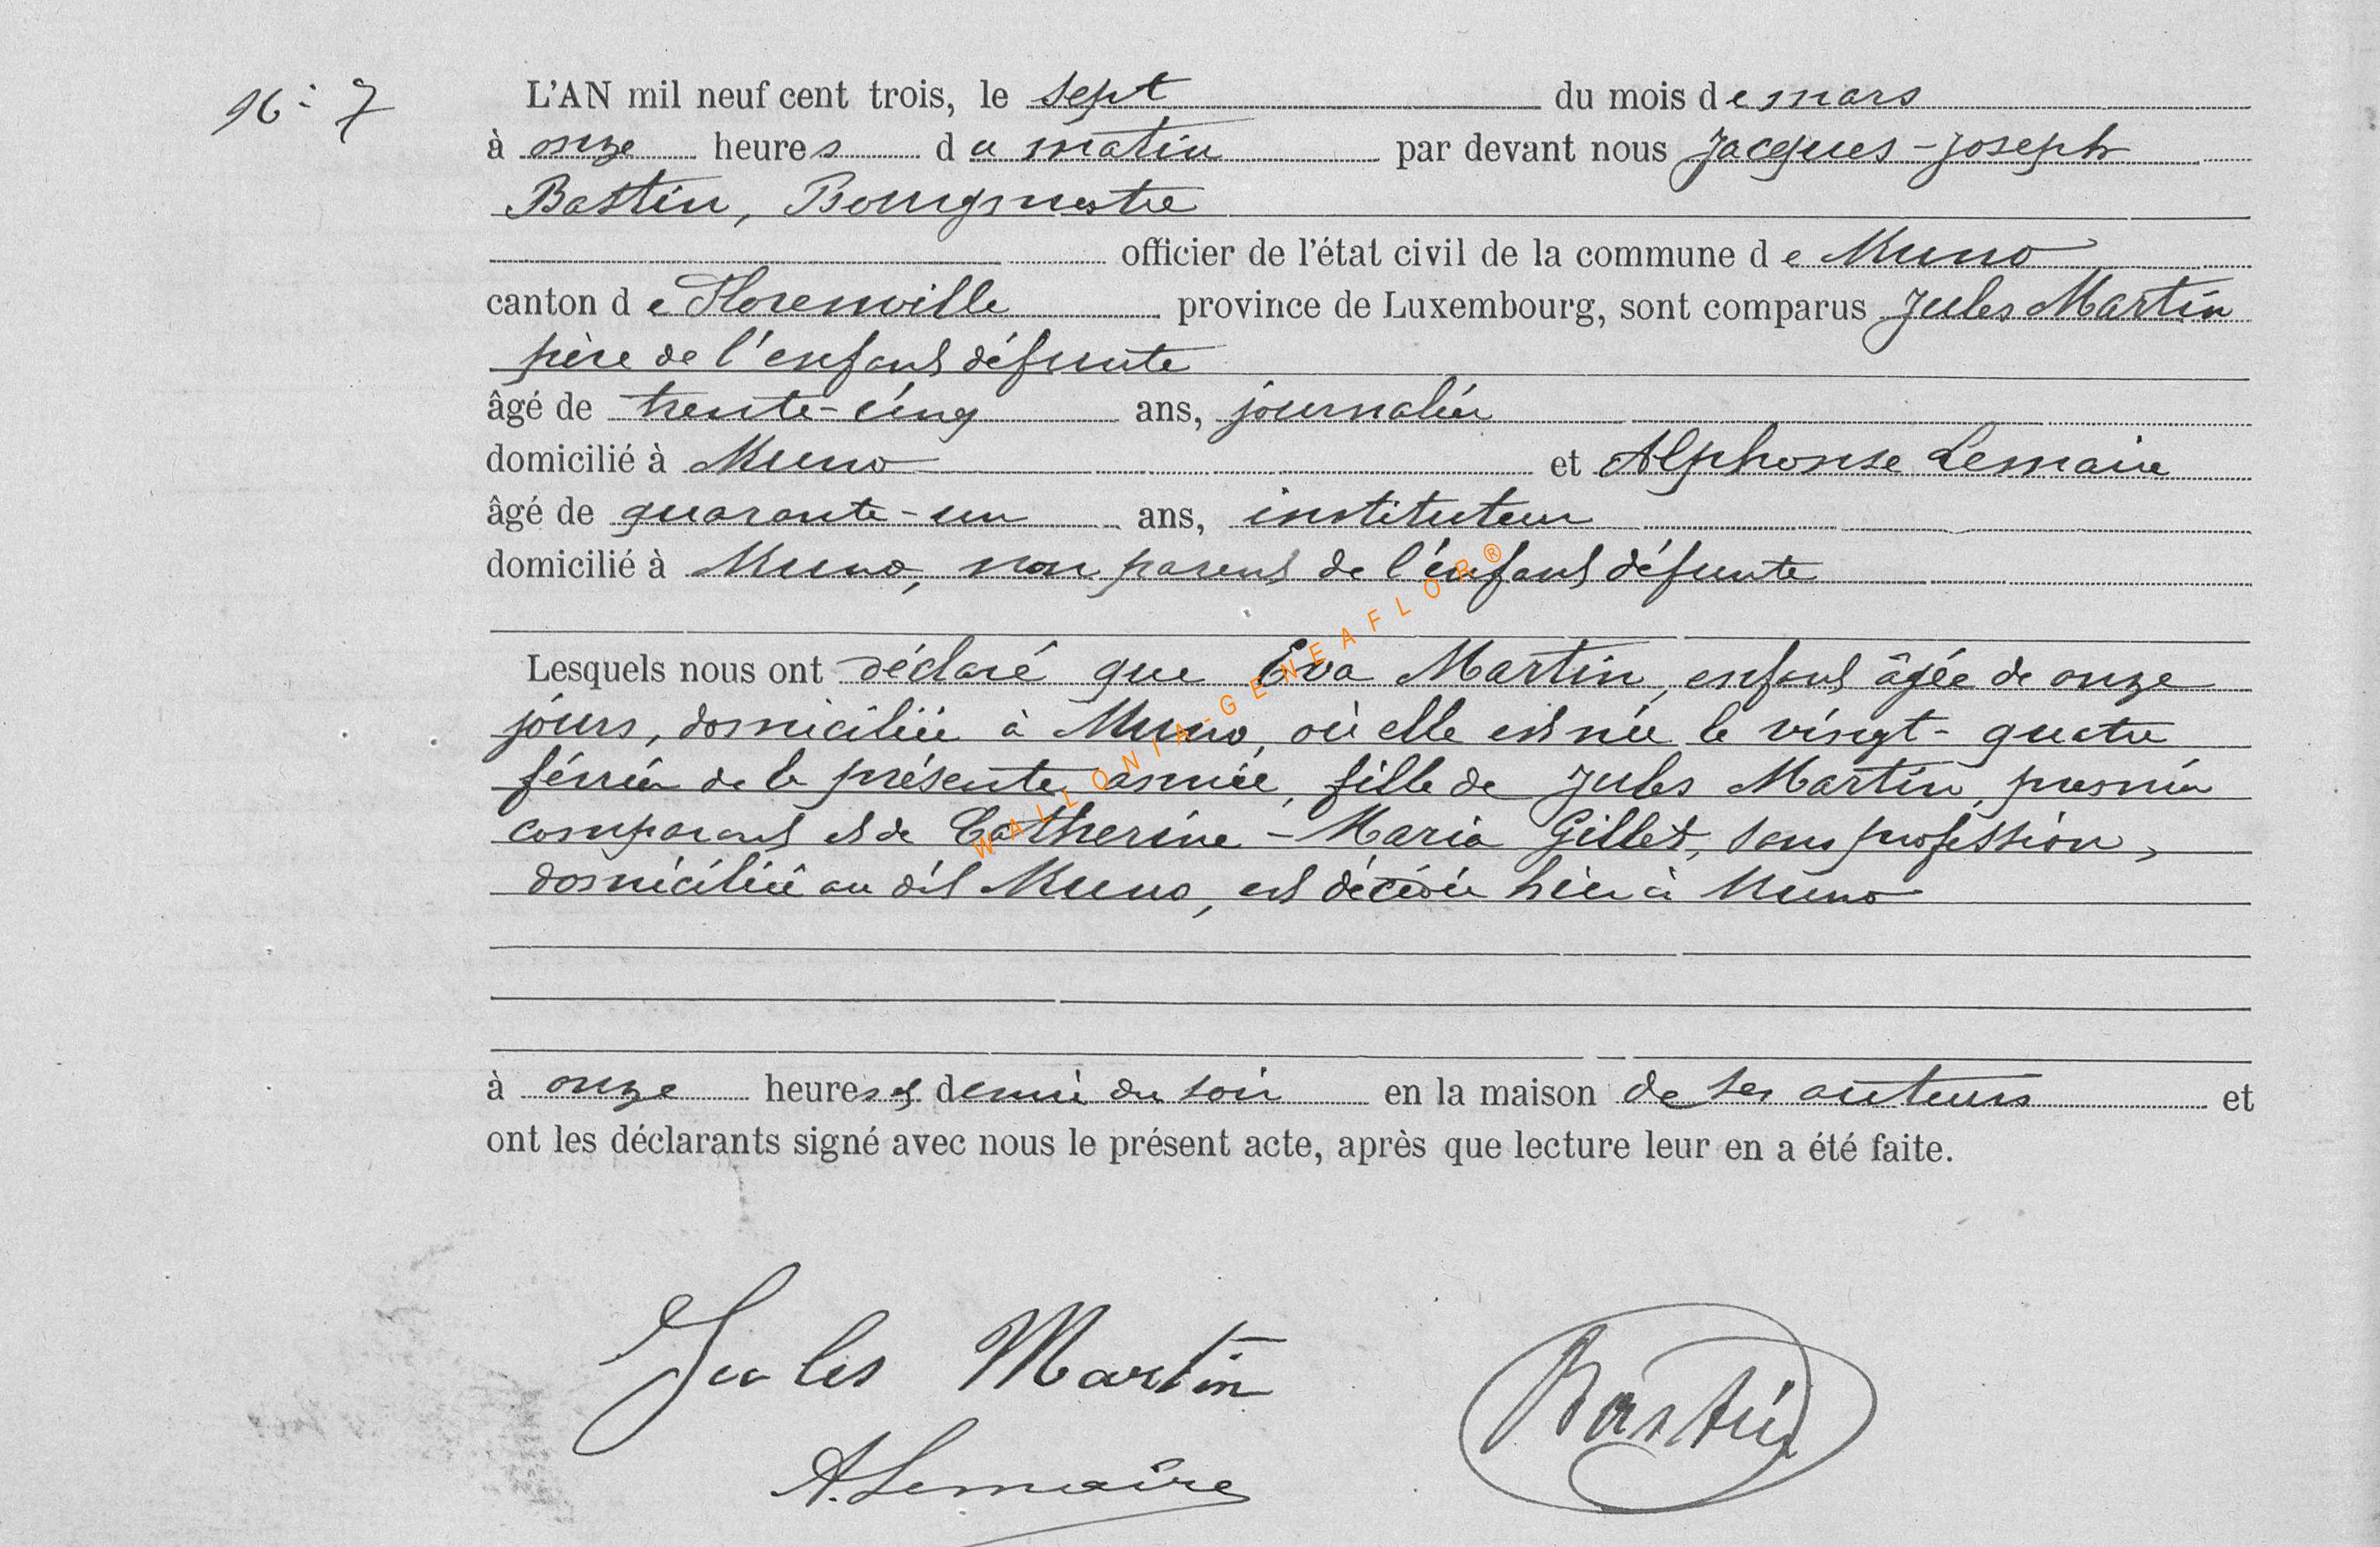 N° 7
L'AN mil neuf cent trois, le sept du mois de mars
à onze heures du matin par devant nous Jacques-Joseph
Bastin, Bourgmestre
officier de l'état civil de la commune de Muno
canton de Florenville province de Luxembourg, sont comparus Jules Martin
père de l'enfant défunte
âgé de trente-cinq ans, journalier
domicilié à Muno et Alphonse Lemaire
âgé de quarante-un ans, instituteur
domicilié à Muno, non parent de l'enfant défunte
Lesquels nous ont déclaré que Eva Martin, enfant âgée de onze
jours, domiciliée à Muno, où elle est née le vingt-quatre
février de la présente année, fille de Jules Martin, premier
comparant et de Catherine-Maria Gillet, sans profession,
domiciliée au dit Muno, est décédée hier à Muno
à onze heures et demie du soir en la maison de ses auteurs et
ont les déclarants signé avec nous le présent acte, après que lecture leur en a été faite.
Jules Martin
Bastin
A. Lemaire
WALLONIA-GENEAFLOR®